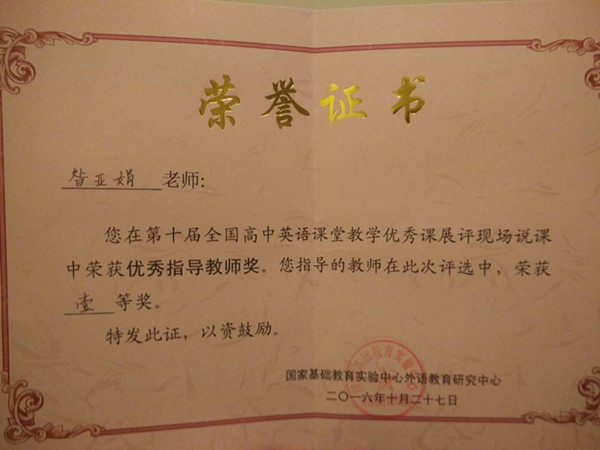 荣誉证书
昝亚娟 老师:
您在第十届全国高中英语课堂教学优秀课展评现场说课
中荣获优秀指导教师奖。您指导的教师在此次评选中，荣获
壹 等奖。
特发此证，以资鼓励。
国家基础教育实验中心外语教育研究中心
二〇一六年十月二十七日